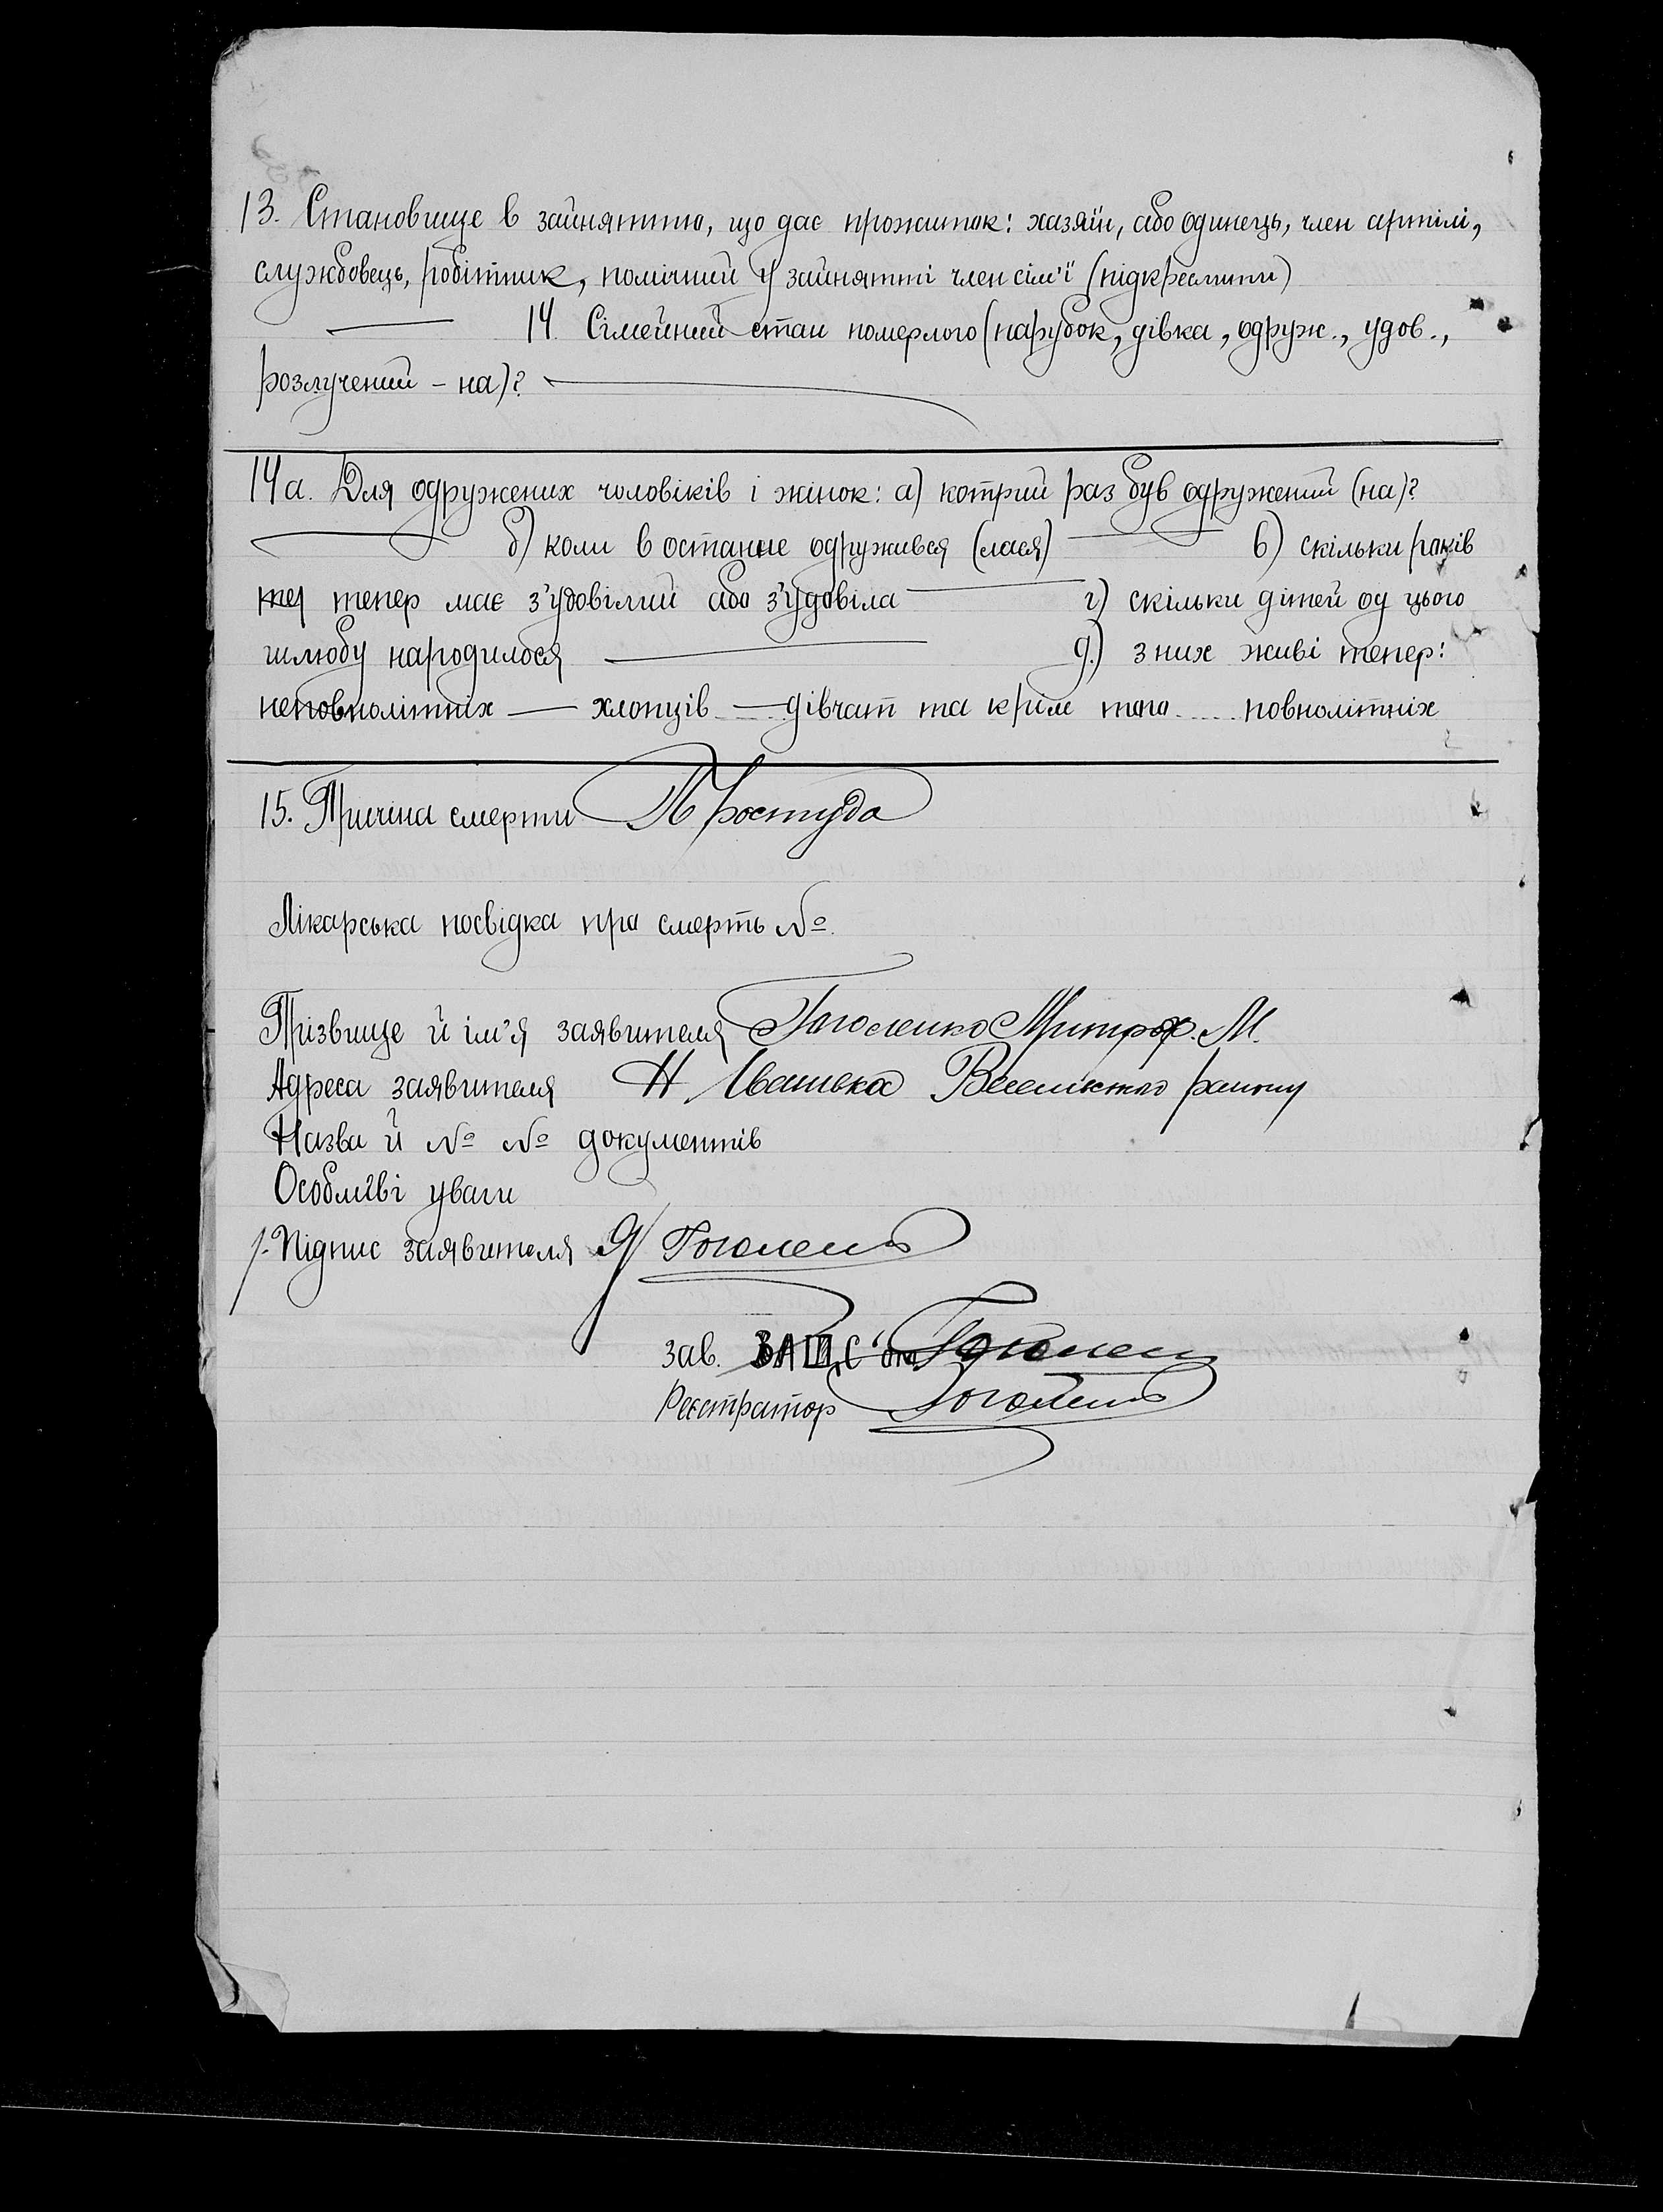 13. Становище в зайняттю, що дає прожиток: хазяїн, або одинець, член артілі,
службовець, робітник, помічний у зайнятті член сім'ї (підкреслити)
— 14. Сімейний стан померлого (парубок, дівка, одруж., удов.,
розлучений – на)? —
14а. Для одружених чоловіків і жінок: а) котрий раз був одружений (на)?
— б) коли востаннє одружився (лася) — в) скільки років
тепер має з'удовілий або з'удовіла — г) скільки дітей од цього
шлюбу народилося — д.) з них живі тепер:
неповнолітніх — хлопців — дівчат та крім того ..... повнолітніх
15. Причіна смерти Простуда
Лікарська посвідка про смерть №.
Прізвище й ім'я заявителя Гоголенко Митроф. М.
Адреса заявителя Н Ивашька району
Назва й № № документів
Особливі уваги
Підпис заявителя Гоголенко
Зав. ЗАЦС'ом
Реєстратор Гоголенко